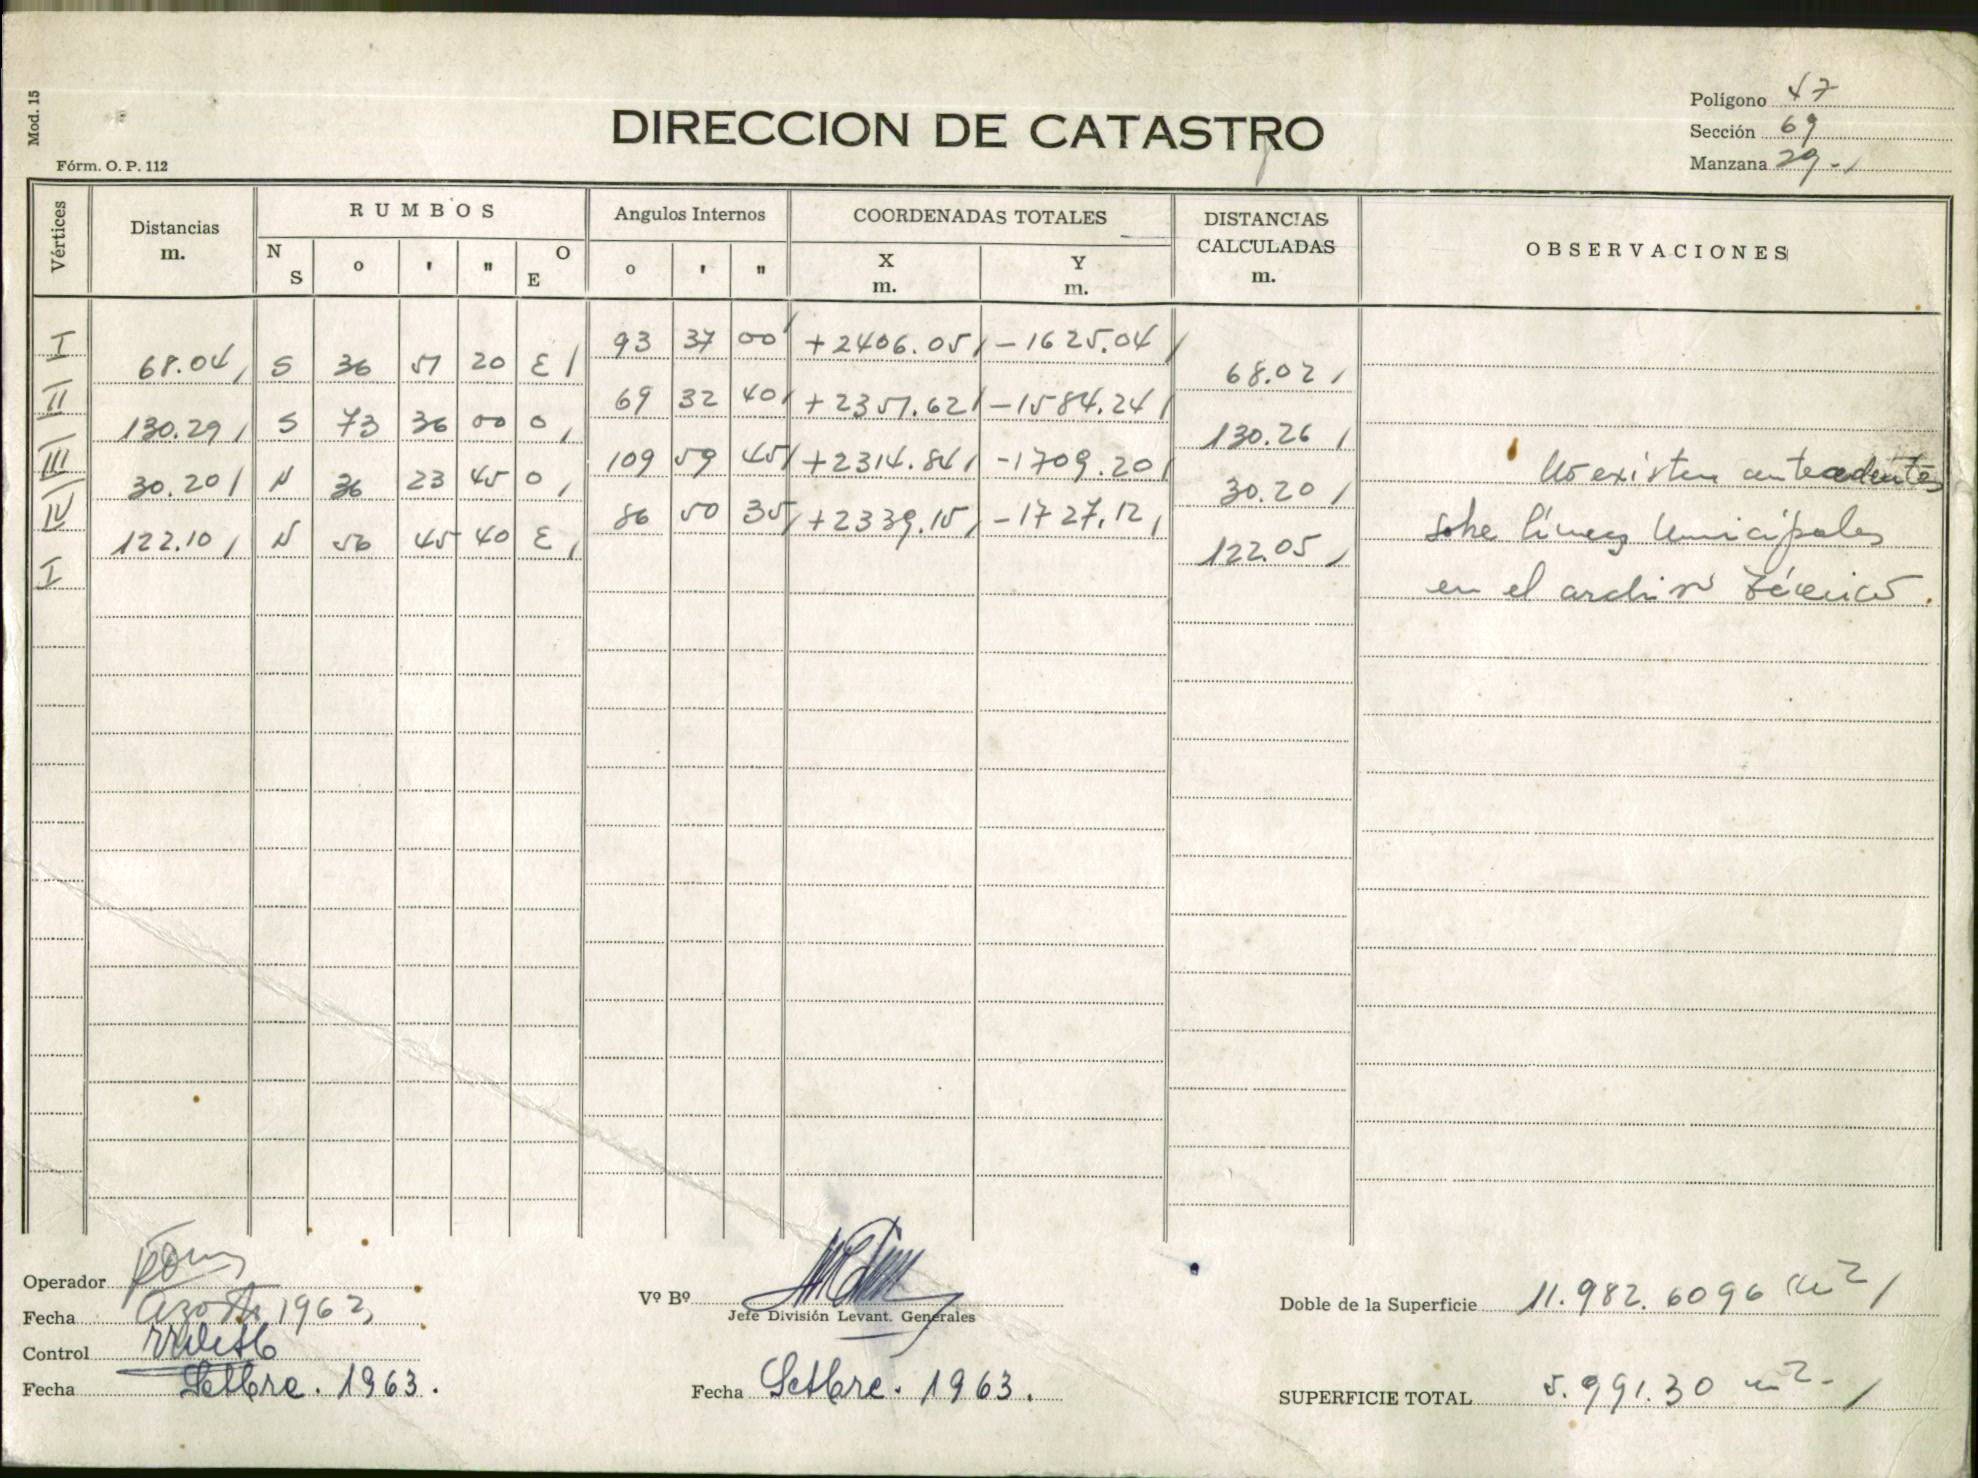 Mod. 15
Fórm. O. P. 112
DIRECCION DE CATASTRO
Polígono 47
Sección 69
Manzana 29.-
Vértices Distancias m. RUMBOS Angulos Internos COORDENADAS TOTALES DISTANCIAS CALCULADAS m. OBSERVACIONES
N S o ' " O E o ' " X m. Y m.
I 93 37 00 +2406.05 -1625.04
68.04 S 36 51 20 E 68.02
II 69 32 40 +2351.62 -1584.24
130.29 S 73 36 00 O 130.26
III 109 59 45 +2314.84 -1709.20
30.20 N 36 23 45 O 30.20 No existen antecedentes
IV 86 50 35 +2339.15 -1727.12
122.10 N 56 45 40 E 122.05 sobre líneas Municipales
I en el archivo técnico.
Operador
Fecha Agosto 1963
Control
Fecha Setbre. 1963.
Vº Bº
Jefe División Levant. Generales
Fecha Setbre. 1963.
Doble de la Superficie 11.982.6096 m2
SUPERFICIE TOTAL 5.991.30 m2.-